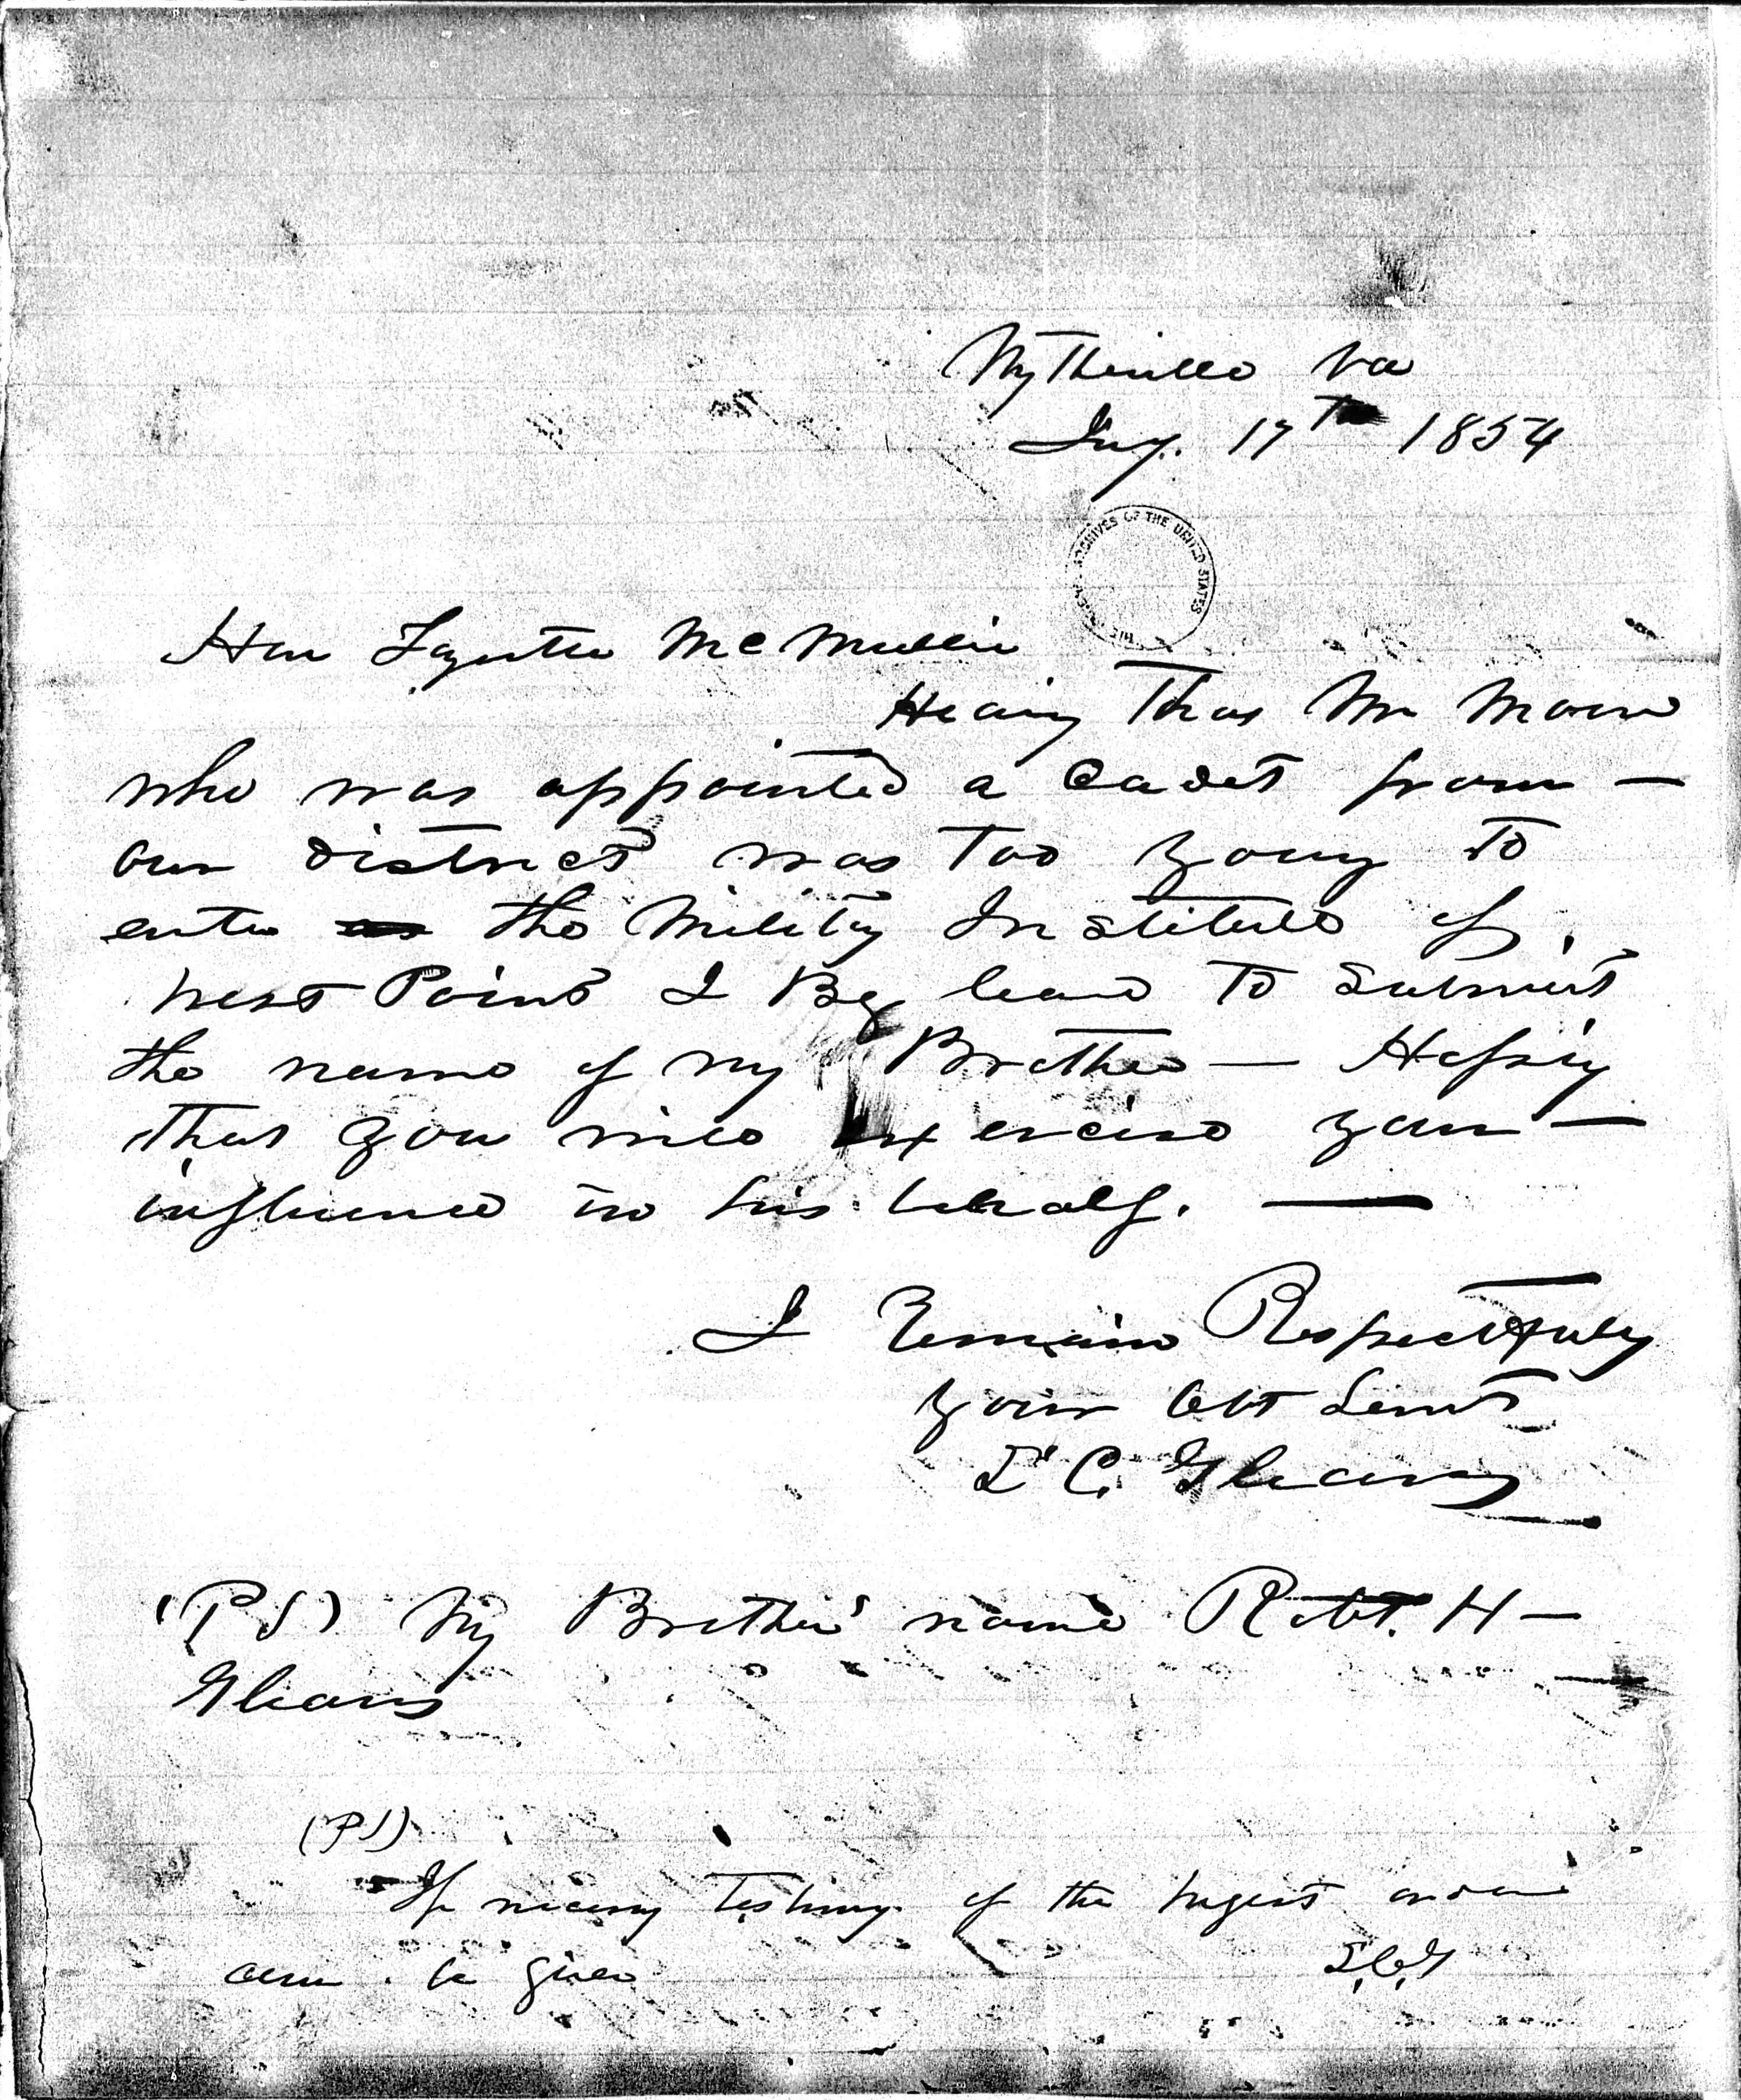 Wytheville Va
17th 1854
THE NATIONAL ARCHIVES OF THE UNITED STATES
Hon Fayette McMullin
Hearing that Mr
who was appointed a Cadet from —
our district was too young to
enter the Military Institute of
West Point I Beg leave to Submit
the name of my Brother — Hoping
that you will exercise your —
influence in his behalf. —
I Remain Respectfully
your Obt Servt
C. Gleaves
(PS) My Brothers' name Robt. H —
Gleaves
(PS)
If necessary testimony of the highest order
can be given